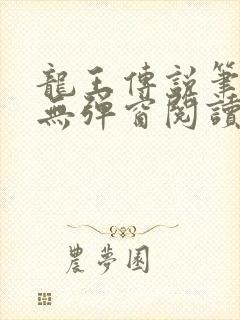 龍王傳說筆
無彈窗閱讀
農夢園